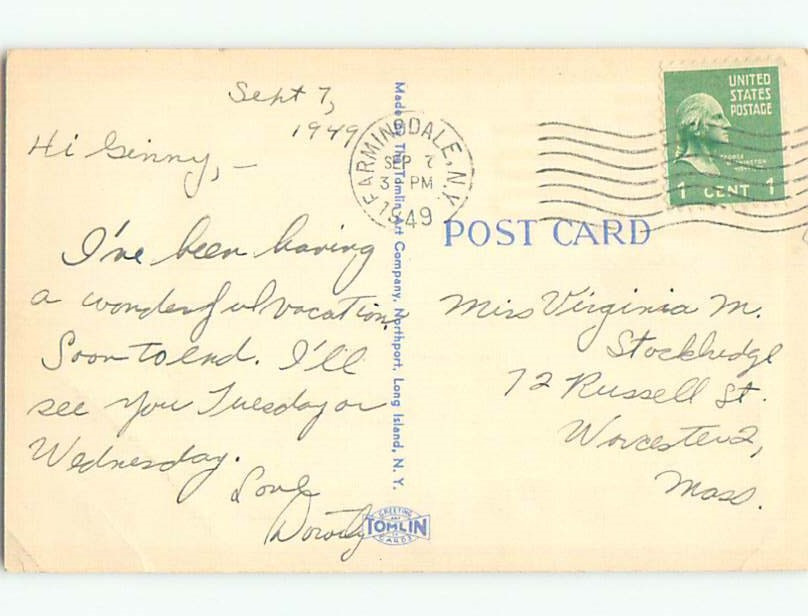 Sept 7,
1949
Hi Ginny, –
I've been having
a wonderful vacation.
Soon to end. I'll
see you Tuesday or
Wednesday.
Love
Dorothy
Made by The Tomlin Art Company, Northport, Long Island, N. Y.
GREETING
TOMLIN
CARDS
FARMINGDALE, N.Y.
SEP 7
3 PM
1949
UNITED
STATES
POSTAGE
GEORGE
WASHINGTON
1 CENT 1
POST CARD
Miss Virginia M.
Stockbridge
72 Russell St.
Worcester 2,
Mass.